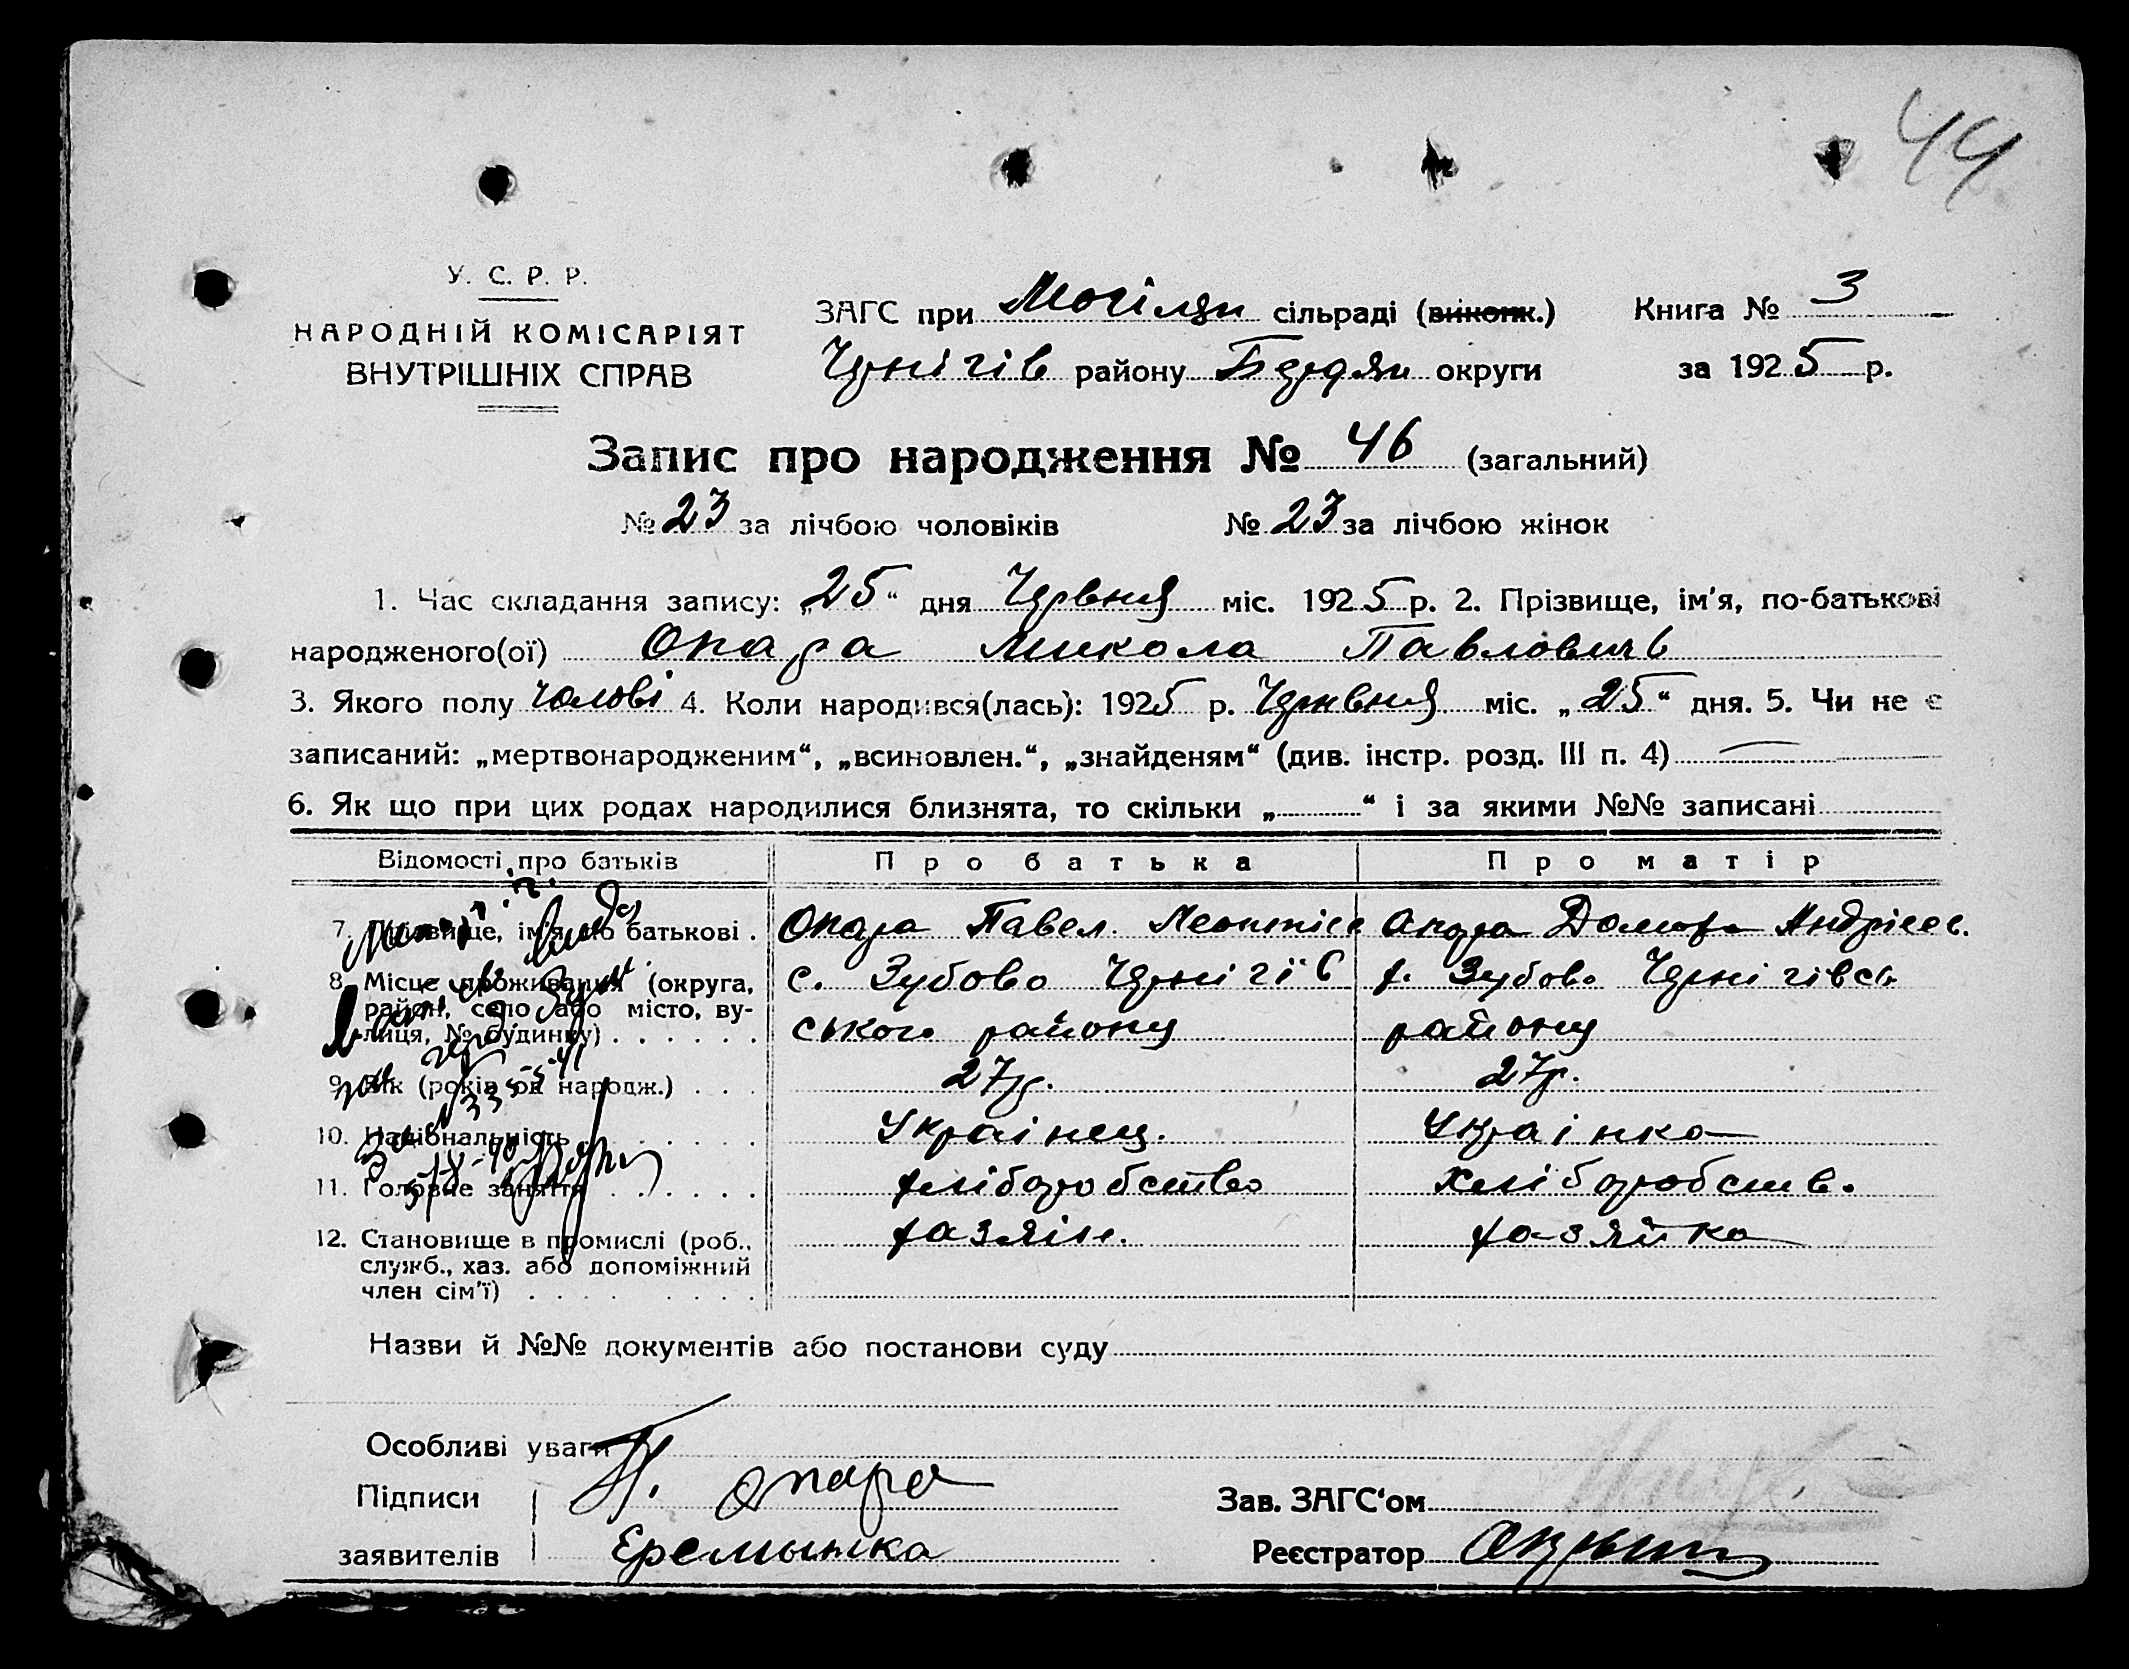 44
У. С. Р. Р.
НАРОДНІЙ КОМІСАРІЯТ
ВНУТРІШНІХ СПРАВ
ЗАГС при Могілян сільраді (виконк.) Книга № 3
Чернігів району Бердян округи за 1925 р.
Запис про народження № 46 (загальний)
№ 23 за лічбою чоловіків № 23 за лічбою жінок
1. Час складання запису: „25“ дня Червня міс. 1925 р. 2. Прізвище, ім'я, по-батькові
народженого(ої) Опара Микола Павловичь
3. Якого полу чолові 4. Коли народився(лась): 1925 р. Червня міс. „25“ дня. 5. Чи не є
записаний: „мертвонародженим“, „всиновлен.“, „знайденям“ (див. інстр. розд. III п. 4)
6. Як що при цих родах народилися близнята, то скільки „ “ і за якими №№ записані
Відомості про батьків Про батька Про матір
7. Прізвище, ім'я, по батькові . Опара Павел Леонтіев Опара Домаха Андріев.
8. Місце проживання (округа, с. Зубово Чернігів х. Зубово Чернігівск
район, село або місто, ву- ського району району
лиця, № будинку)
9. Вік (років од народж.) 27р. 27р.
10. Національність Украінец. Украінка
11. Головне заняття хліборобство хліборобств.
12. Становище в промислі (роб., хазяін. хазяйка
служб., хаз. або допоміжний
член сім'ї)
Назви й №№ документів або постанови суду
Особливі уваги
Підписи П. Опара Зав. ЗАГС‘ом
заявителів Реєстратор